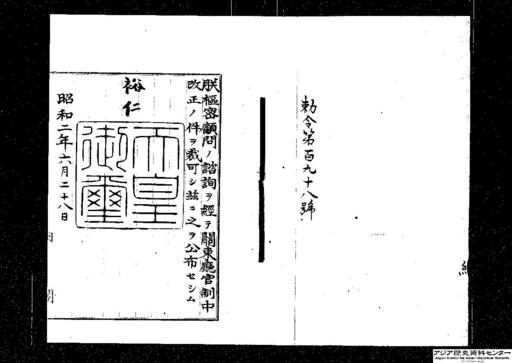 勅令第百九十八號
朕樞密顧問ノ諮詢ヲ經テ關東廳官制中
改正ノ件ヲ裁可シ茲ニ之ヲ公布セシム
裕仁
天皇
御璽
昭和二年六月二十八日
内閣
アジア歴史資料センター
Japan Center for Asian Historical Records